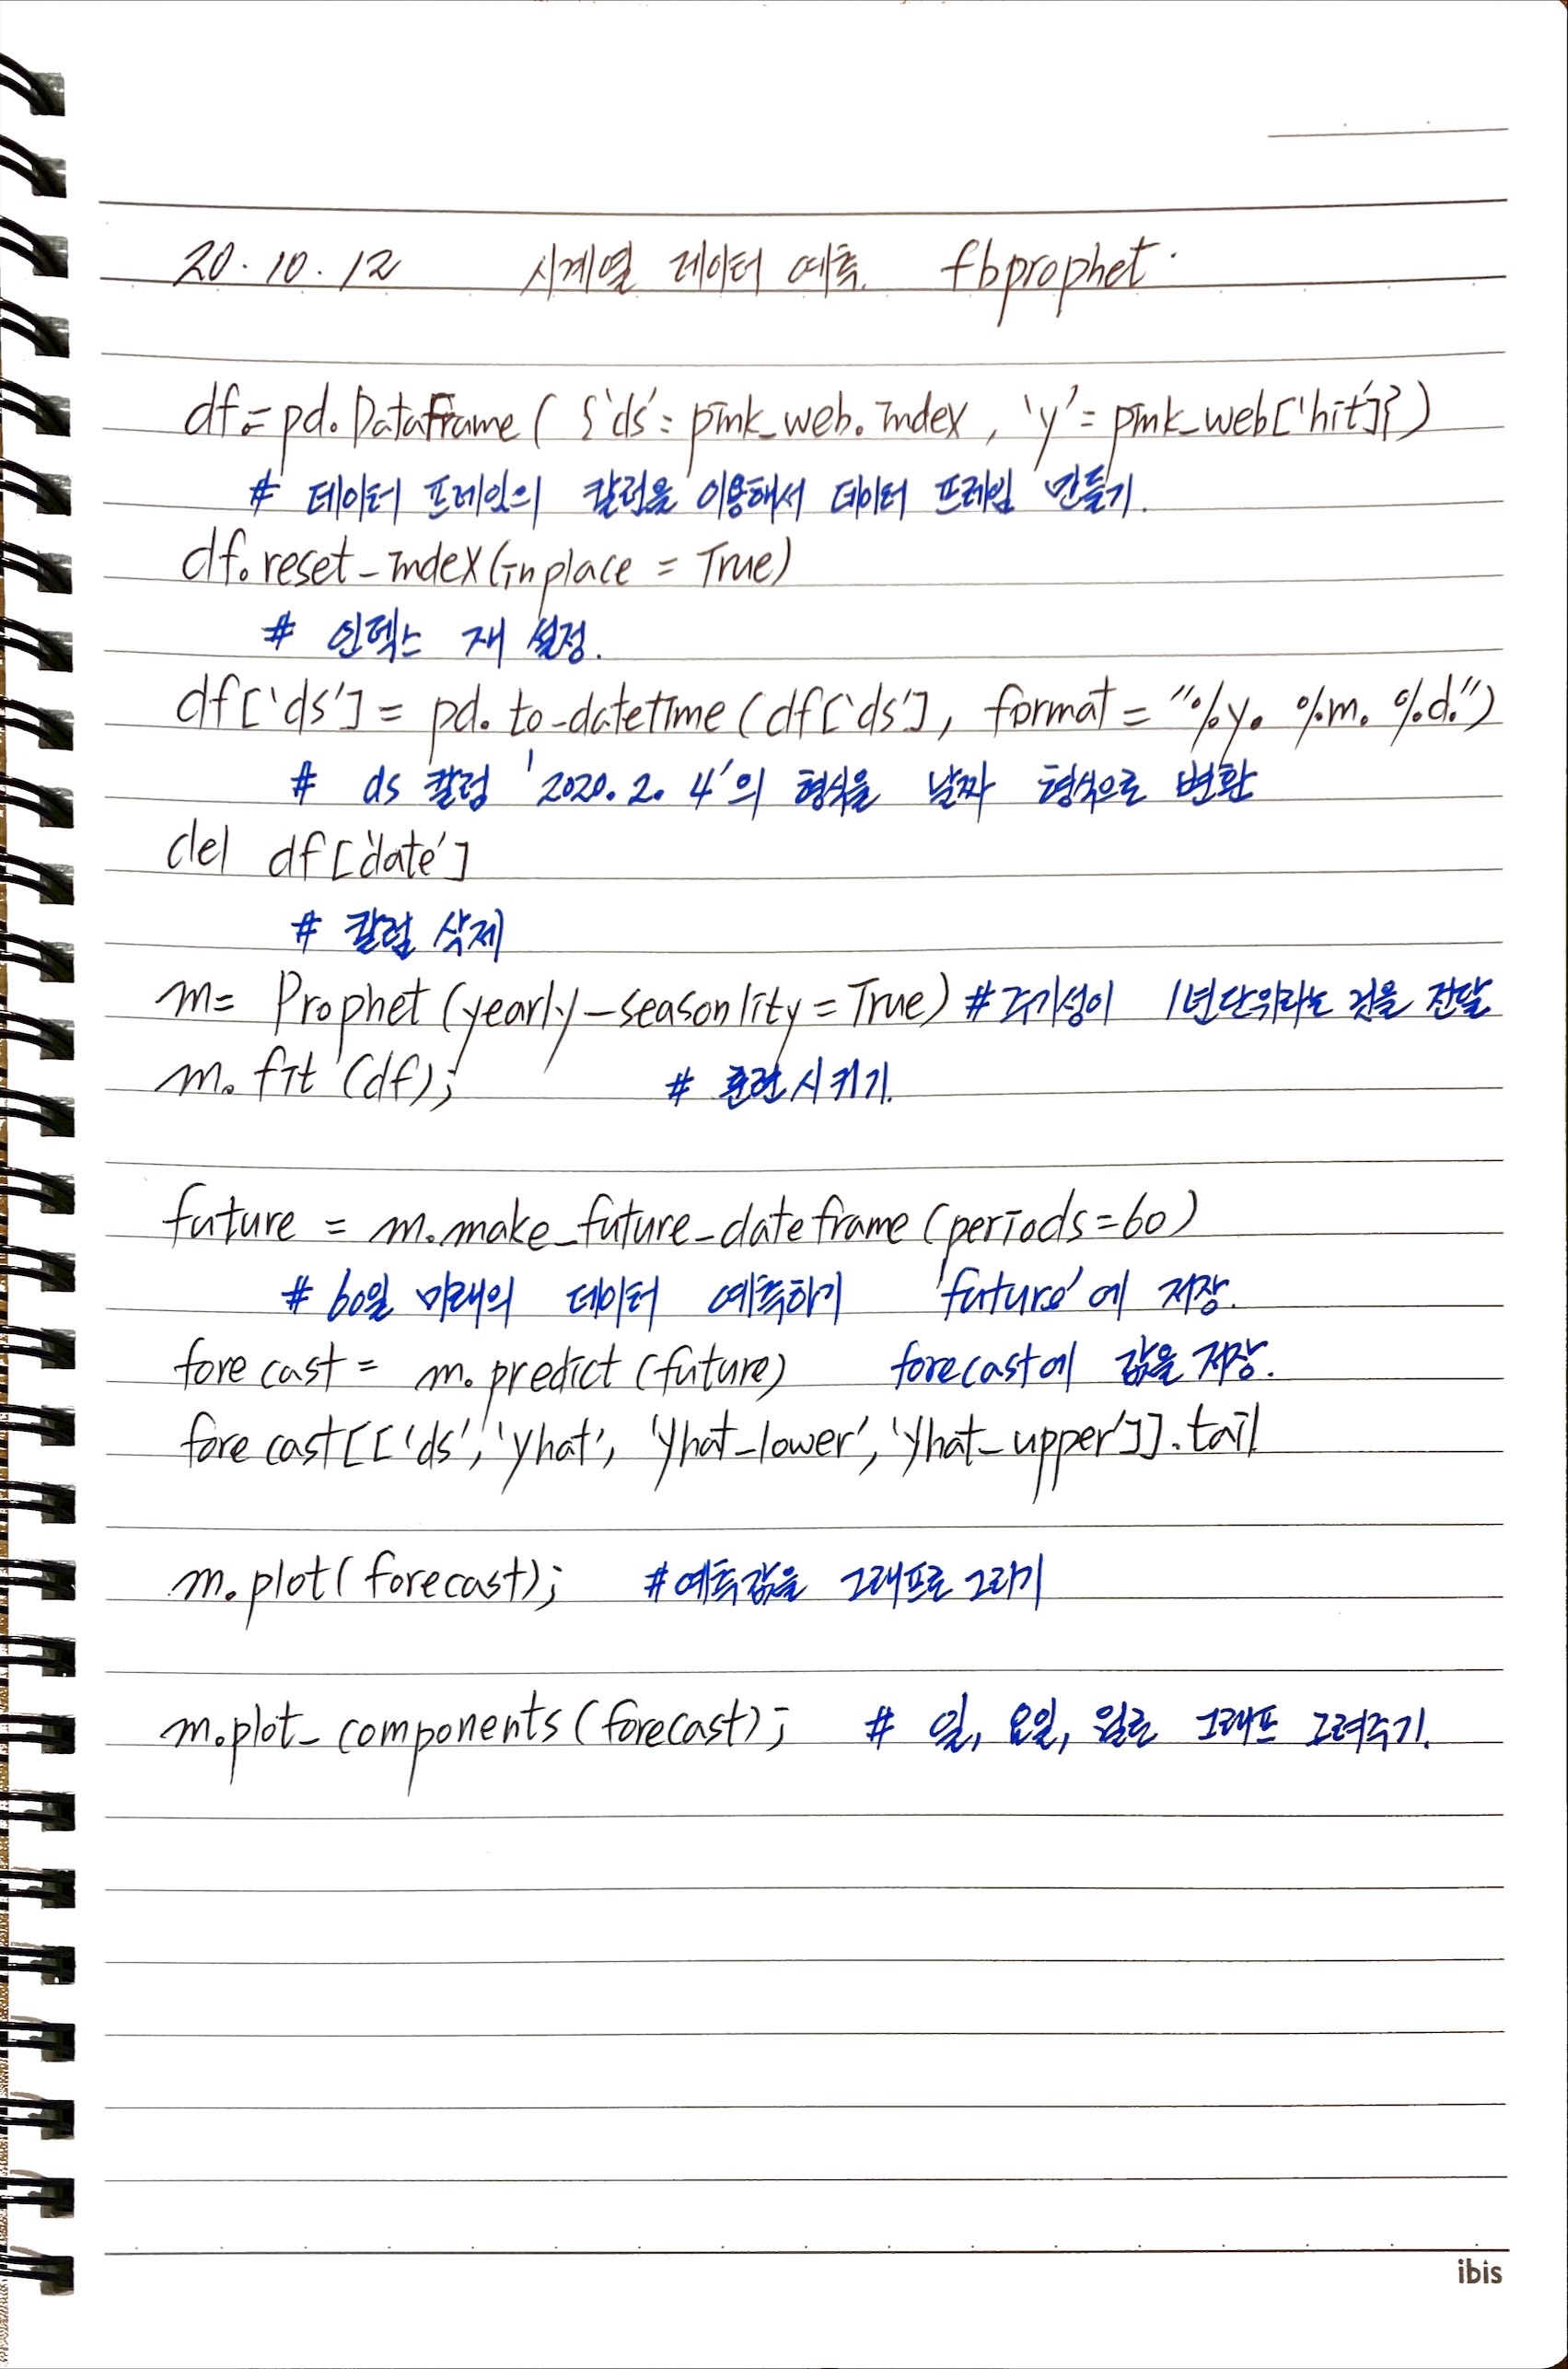 20.10.12 시계열 데이터 예측. fbprophet.
df = pd.DataFrame({'ds': pink_web.index, 'y'= pink_web['hit']})
# 데이터 프레임의 칼럼을 이용해서 데이터 프레임 만들기.
df.reset_index(inplace = True)
# 인덱스 재 설정.
df['ds'] = pd.to_datetime(df['ds'], format = "%y. %m. %d.")
# ds 칼럼 '2020. 2. 4'의 형식을 날짜 형식으로 변환
del df['date']
# 칼럼 삭제
m= Prophet(yearly_seasonlity = True) # 주기성이 1년단위라는 것을 전달
m.fit (df); # 훈련시키기.
future = m.make_future_dateframe (periods=60)
# 60일 미래의 데이터 예측하기 'future'에 저장.
forecast = m.predict (future) forecast에 값을 저장.
forecast[['ds', 'yhat', 'yhat_lower', 'yhat_upper']].tail
m.plot(forecast); # 예측값을 그래프로 그리기
m.plot_components(forecast); # 일, 요일, 월로 그래프 그려주기.
ibis